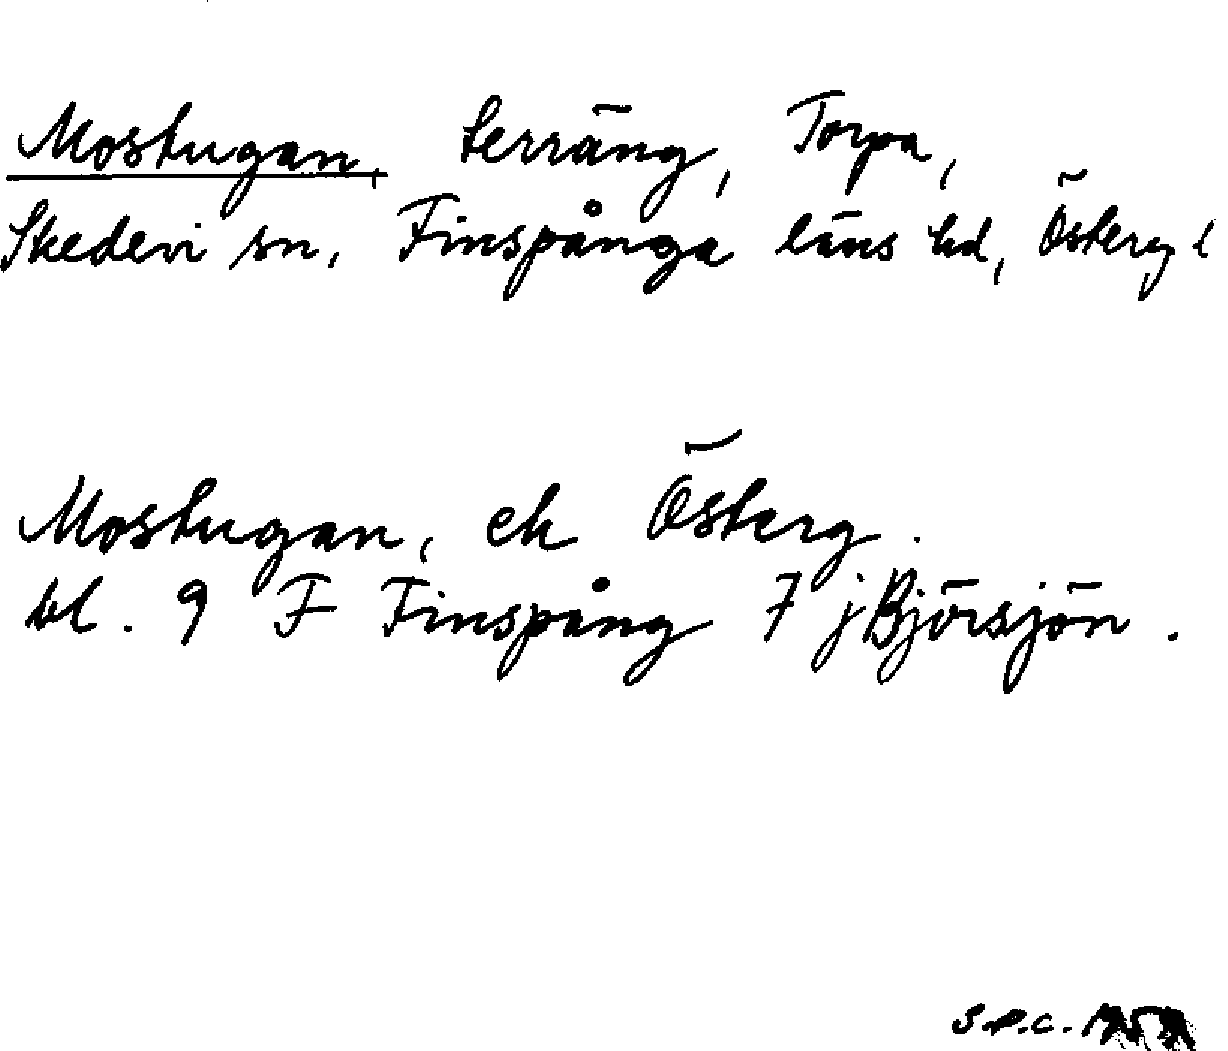 Mostugan, terräng, Torpa,
Skedevi sn, Finspånga läns hd, Österg l
Mostugan, ek Österg.
bl. 9 F Finspång 7 j Björsjön.
S.P.C.